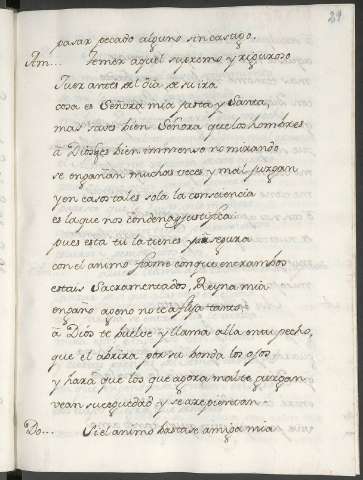 29
pasar pecado alguno sin castigo.
Am... Temer aquel supremo y riguroso
Juez antes del dia de su ira
cosa es Señora mia justa y Santa,
mas saves bien Señora que los hombres
â Dios q̃es bien immenso no mirando
se engañan muchas veces y mal juzgan
y en casos tales sola la consciencia
es la que nos condena y justifica
pues esta tú la tienes segura
con el animo firme con que entrambos
estais Sacramentados, Reyna mia
engaño ageno no te aflija tanto
â Dios te buelve y llama alla en tu pecho,
que èl abrirà por su honda los ojos
y harà que los que agora mal te juzgan
vean su ceguedad y se arepientan
Do... Si el animo bastase amiga mia